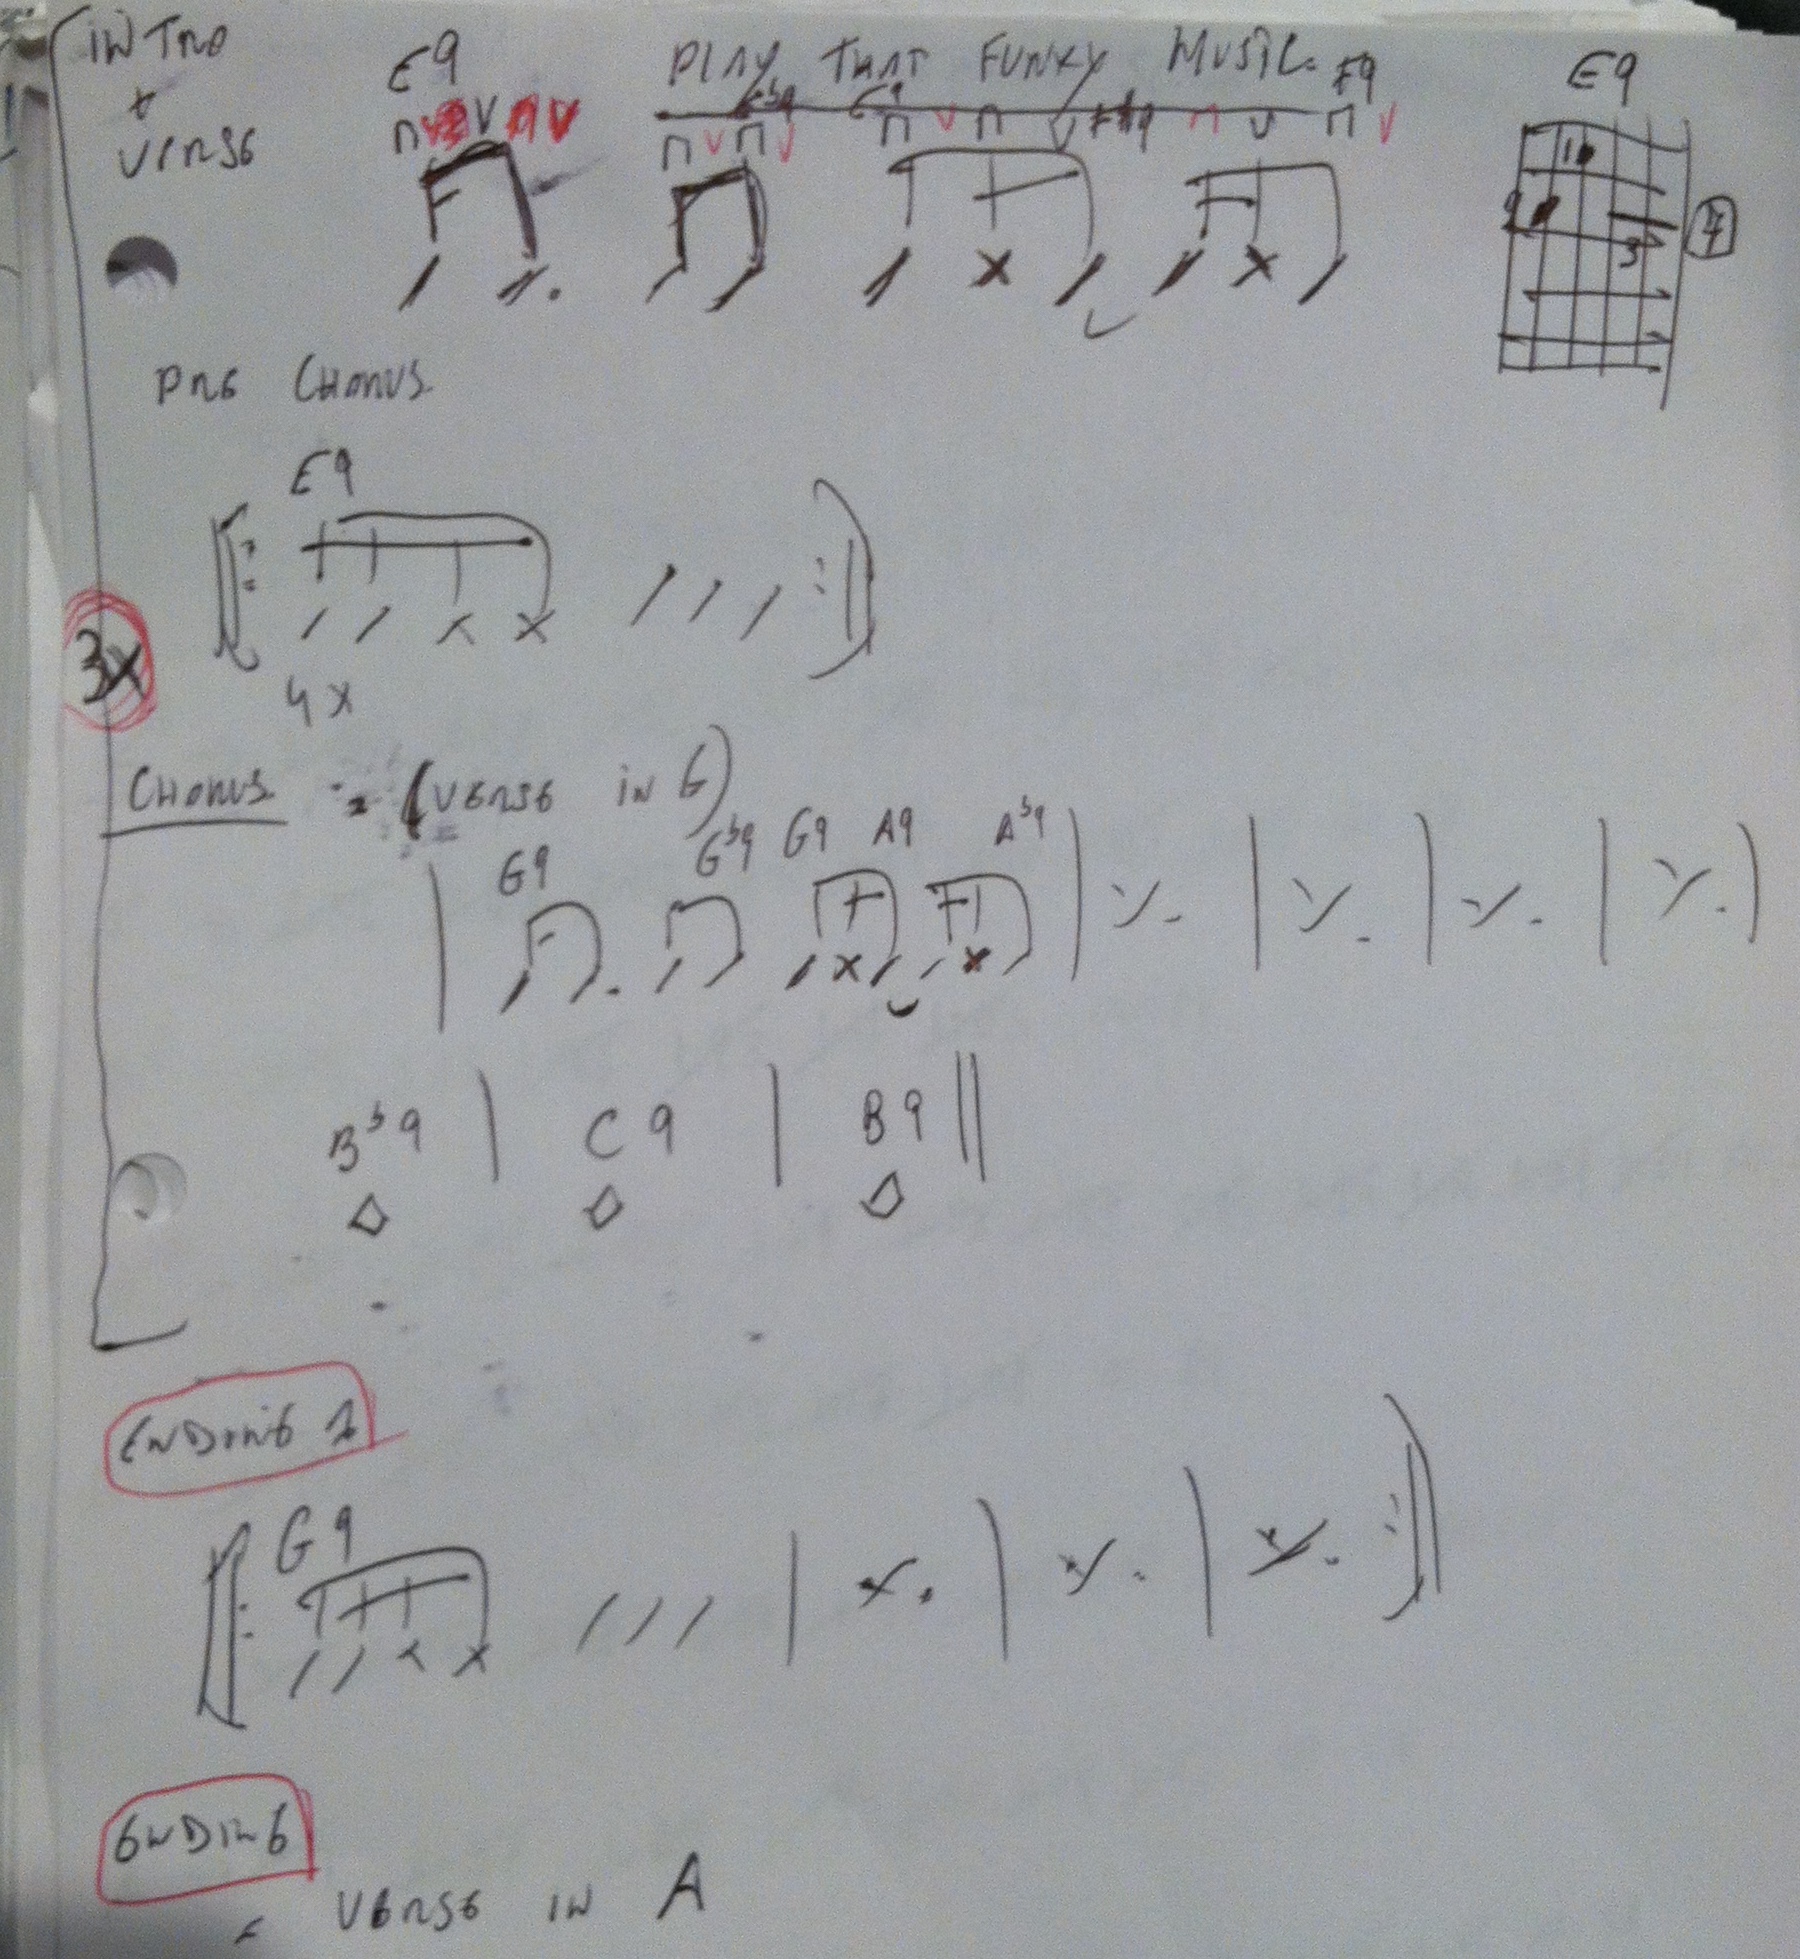 INTRO
+
VERSE
E9
PLAY THAT FUNKY MUSIC
Eb9 E9 F#9 F9
E9
1
2
3
7
PRE CHORUS
E9
3X
4X
CHORUS = (VERSE IN G)
G9 Gb9 G9 A9 Ab9
Bb9 C9 B9
ENDING 1
G9
ENDING
= VERSE IN A